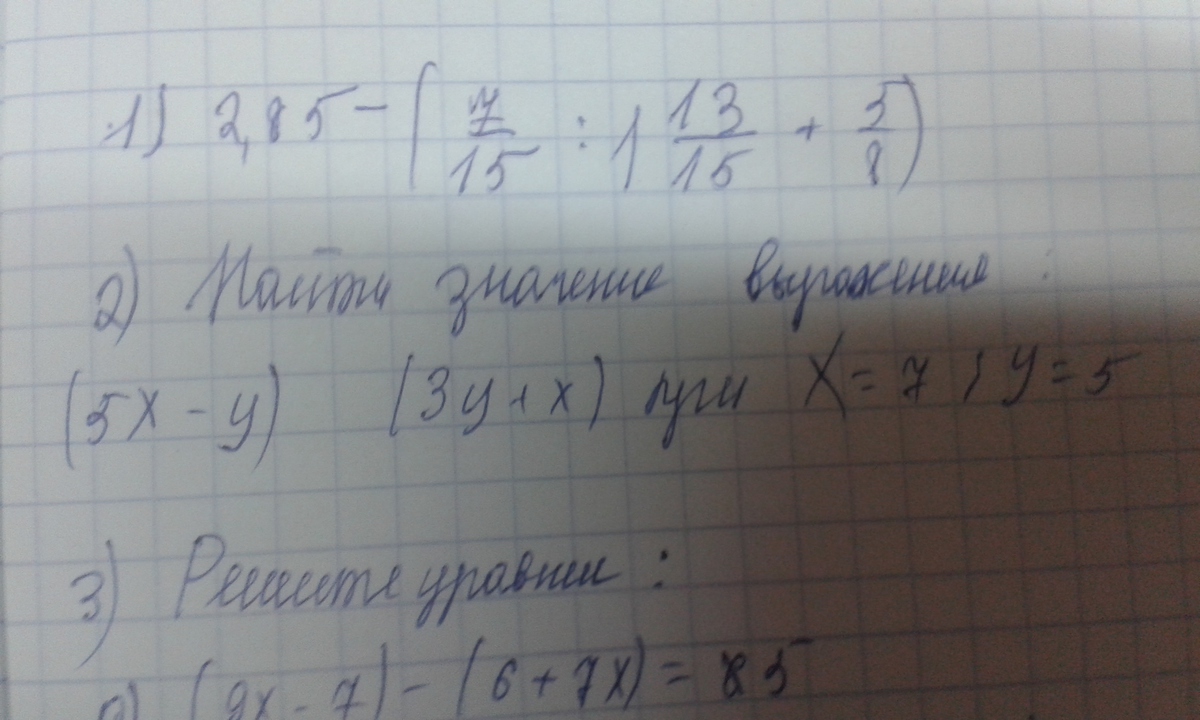 1) 2,85 - (7/15 : 1 13/15 + 5/8)
2) Найти значение выражения :
(5x - y) (3y + x) при x = 7 ; y = 5
3) Решите уравнен :
(9x - 7) - (6 + 7x) = 85